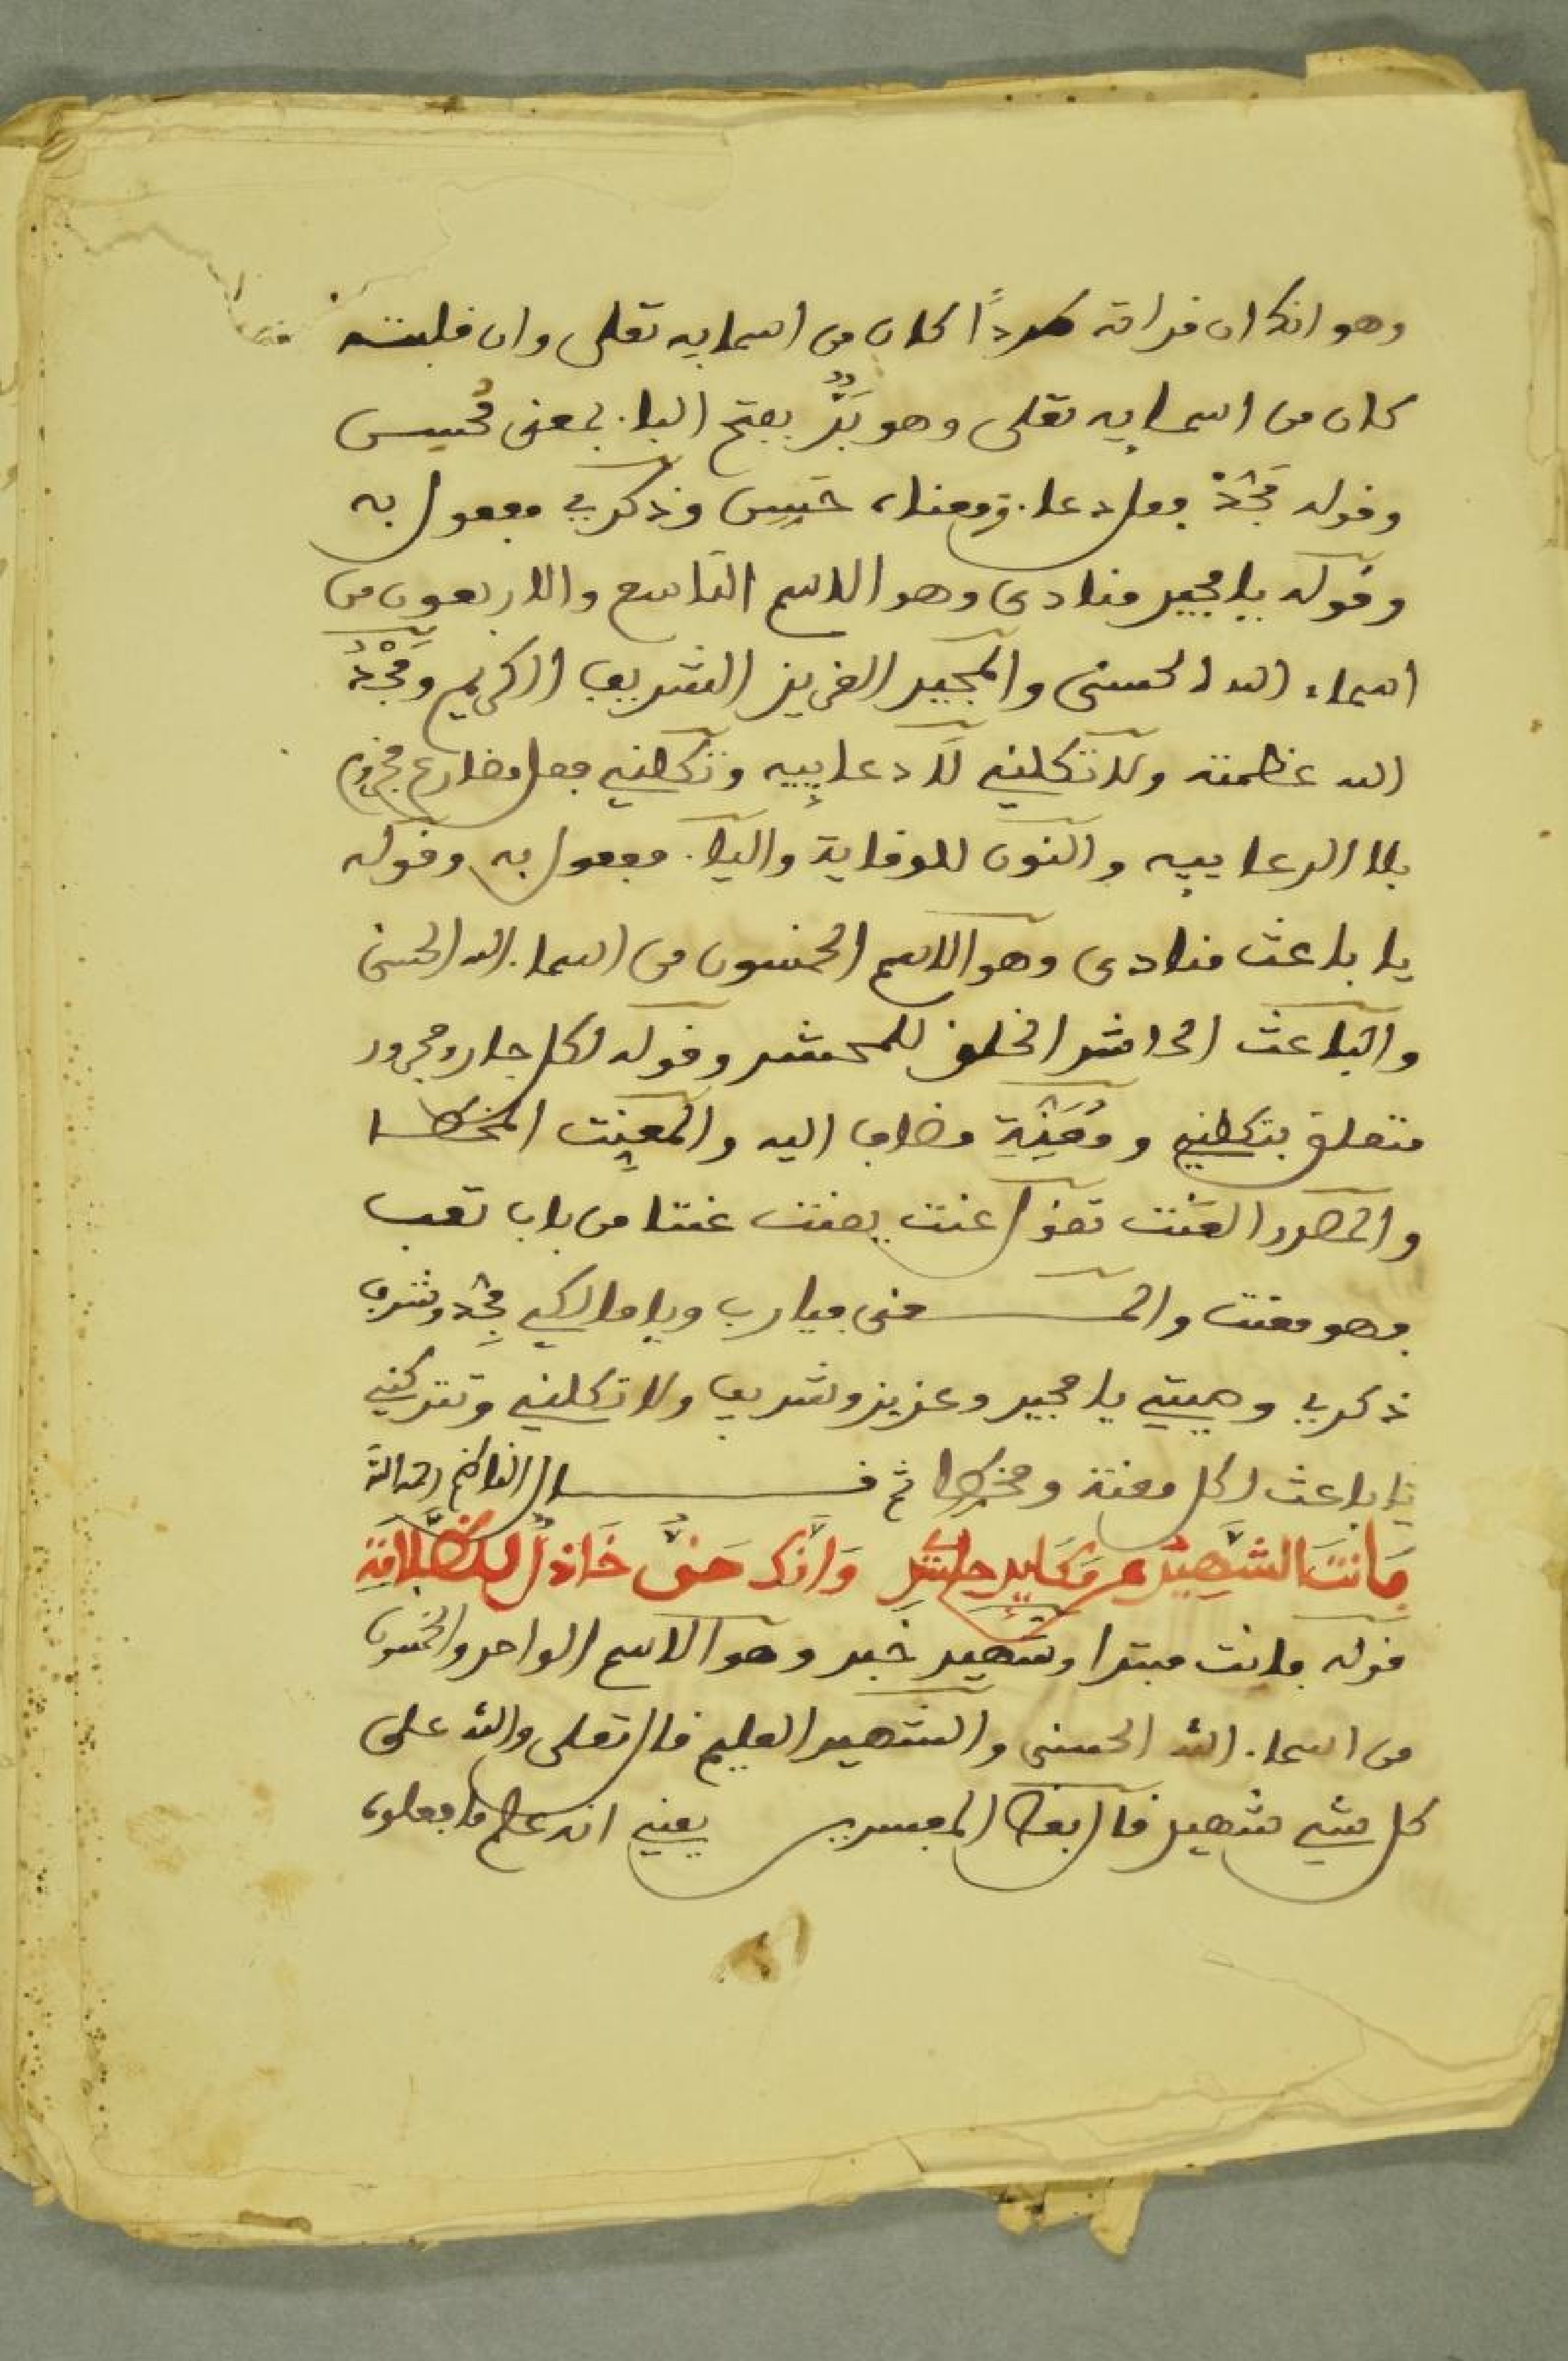 وهو انك ان قراته طردًا كان من اسمايه تعلى وان قلبته
كان من اسمايه تعلى وهو بَرّ بفتح البا. بمعنى مُحسن
وقوله مَجّدْ فعل دعا. ومعناه حَسِّن وذكري مفعول به
وقوله يا مجيد منادى وهو الاسم التاسع والاربعون من
اسماء الله الحسنى والمجيد العزيز الشريف الكريم ومَجْدُ
الله عظمته ولا تكلني لا دعاييه وتكلني فعل مضارع مجزوم
بلا الدعاييه والنون للوقاية واليا. مفعول به وقوله
يا باعث منادى وهو الاسم الخمسون من اسما. الله الحسنى
والباعث الحاشر الخلق للمحشر وقوله لكل جار ومجرور
متعلق بتكلني ومُعَنِّتٍ مضاف اليه والمعنت المخطا
والمصدر العنت تقول عنت يعنت عنتا من باب تعب
فهو معنت والمعنى فيارب ويا مالكي مجّد وشرف
ذكري وهيبتي يا مجيد وعزيز وشريف ولا تكلني وتتركني
يا باعث لكل معنت ومخطا ثم قال الناظم رحمه الله
فَانتَ الشهيد من مَكَايدِ حاسد وَانك حق خاذل
قوله فانت مبتدا وشهيد خبر وهو الاسم الواحد والخمسون
من اسما. الله الحسنى والشهيد العليم قال تعلى والله على
كل شي شهيد قال بعض المفسرين يعني انه علم ما فعلوه